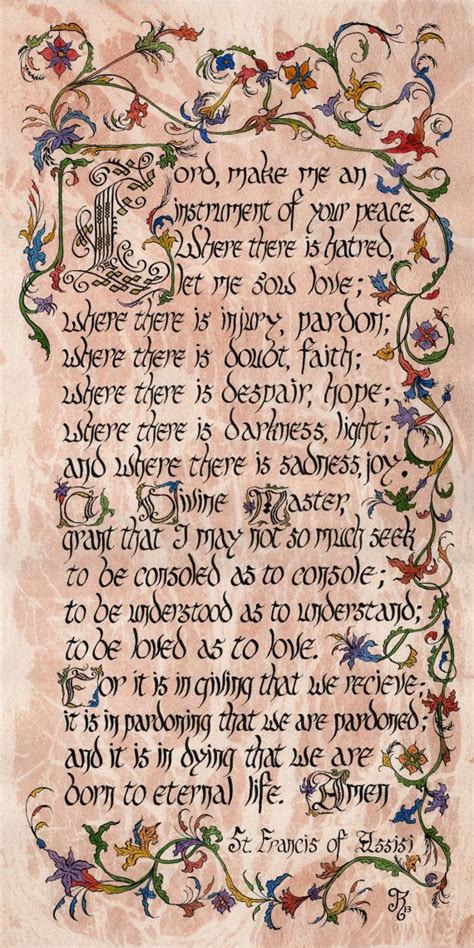 Lord, make me an
instrument of your peace.
Where there is hatred,
let me sow love;
where there is injury, pardon;
where there is doubt, faith;
where there is despair, hope;
where there is darkness, light;
and where there is sadness, joy.
O Divine Master,
grant that I may not so much seek
to be consoled as to console;
to be understood as to understand;
to be loved as to love.
For it is in giving that we recieve;
it is in pardoning that we are pardoned;
and it is in dying that we are
born to eternal life. Amen
St. Francis of Assisi